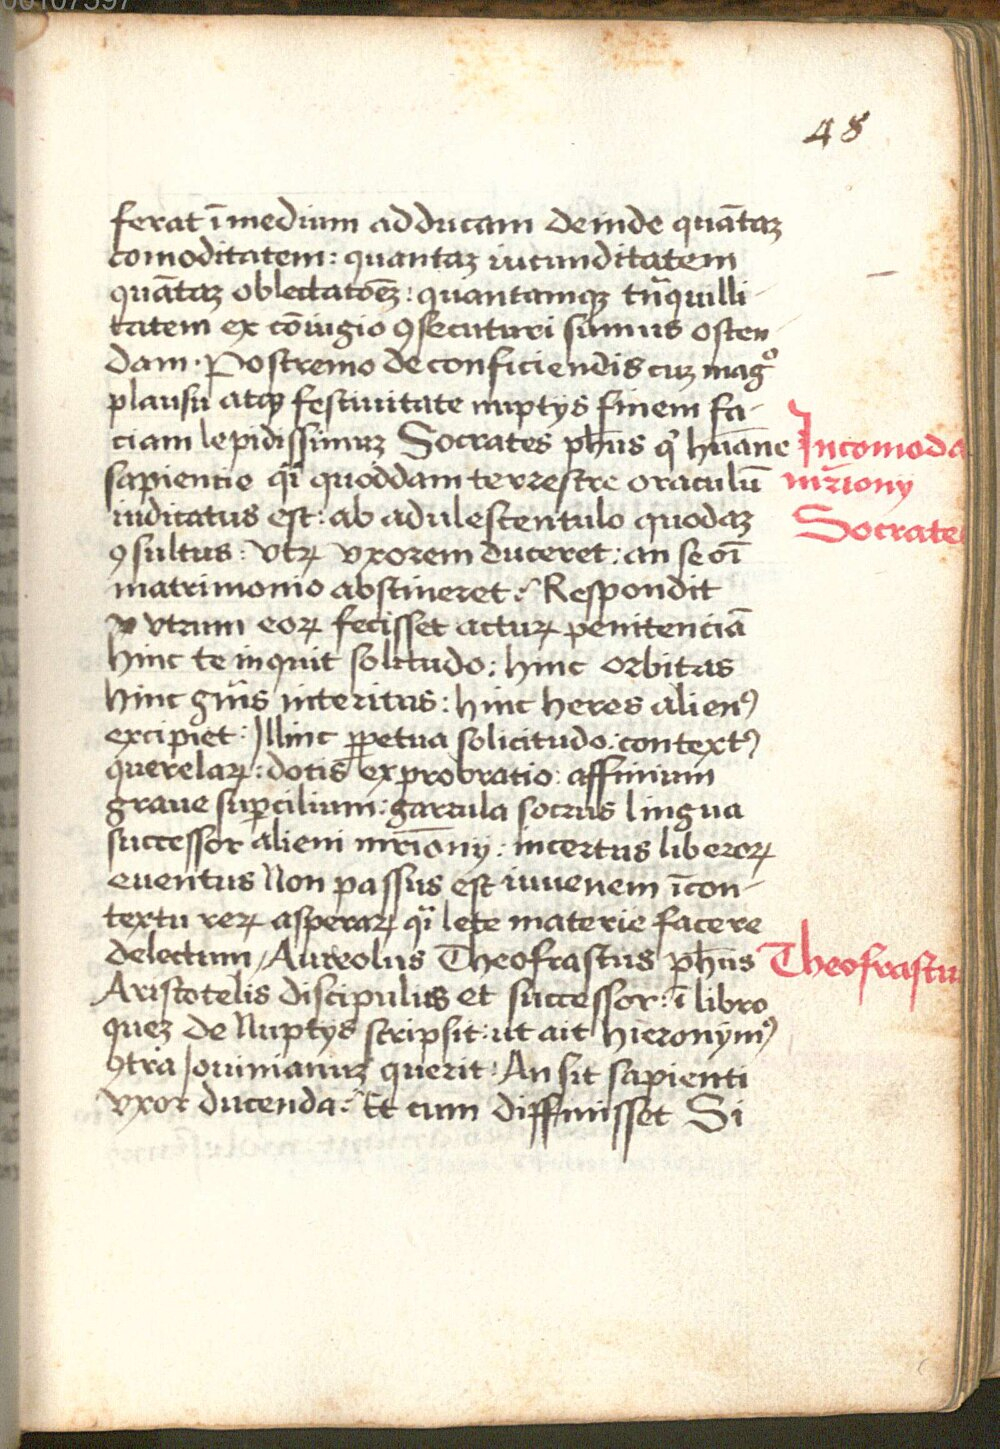 48
ferat ī medium adducam deinde quātaꝫ
comoditatem: quantaꝫ iucunditatem
quātaꝫ oblectatōeꝫ: quantamqꝫ trāquilli-
tatem ex cōiugio ꝯsecuturi sumus osten-
dam. Postremo de conficiendis cuꝫ magº
plausu atqꝫ festiuitate nuptijs finem fa-
ciam lepidissimuꝫ Socrates ph̄us qͥ hūane
sapientie qͣi quoddam terrestre oraculū
iudicatus est: ab adulescentulo quodaꝫ
ꝯsultus: vtꝝ vxorem duceret: an se oī
matrimonio abstineret? Respondit
vtrum eoꝝ fecisset actuꝝ penitenciā
hinc te inquit solitudo: hinc orbitas
hinc gn̄is interitus: hinc heres alienꝰ
excipiet: Illinc ꝑpetua solicitudo: contextꝰ
querelaꝝ: dotis exprobratio: affinium
graue suꝑcilium: garrula socrus lingua
successor alieni mr̄iōnij: incertus liberoꝝ
euentus Non passus est iuuenem ī con-
textu reꝝ asperaꝝ qͣi lete materie facere
delectum, Aureolus Theofrastus ph̄us
Aristotelis discipulus et successor: ī libro
queꝫ de Nuptijs scripsit: ut ait hieronymꝰ
ꝯtra Jouinianuꝫ querit: An sit sapienti
vxor ducenda? Et cum diffinisset Si
Incomoda
mr̄ionij
Socrates
Theofrastu